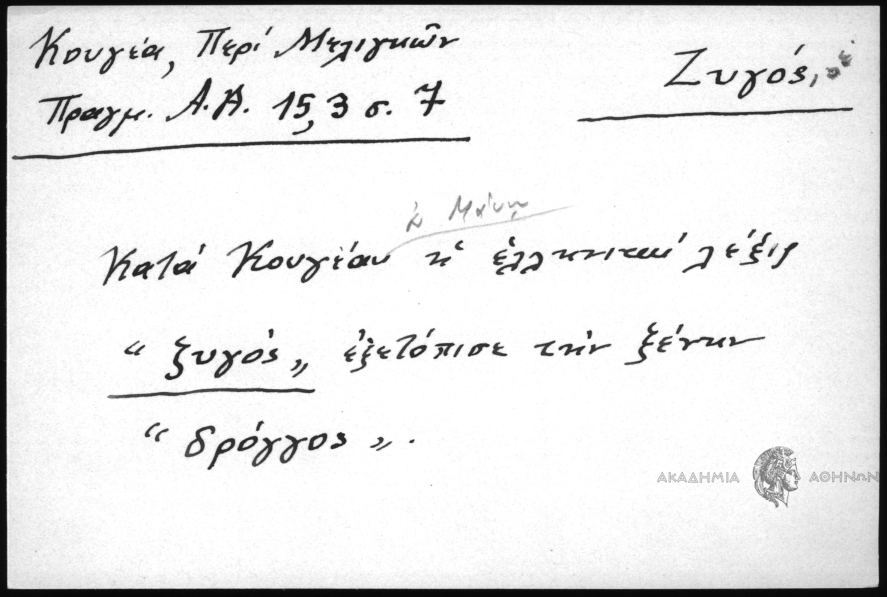 Κουγέα, Περί Μελιγκῶν
Πραγμ. Α.Α. 15, 3 σ. 7
Ζυγός, ὁ
ἐν Μάνῃ
Κατά Κουγέαν ἡ ἑλληνική λέξις
“ ζυγός „ ἐξετόπισε τήν ξένην
“ δρόγγος „.
ΑΚΑΔΗΜΙΑ ΑΘΗΝΩΝ